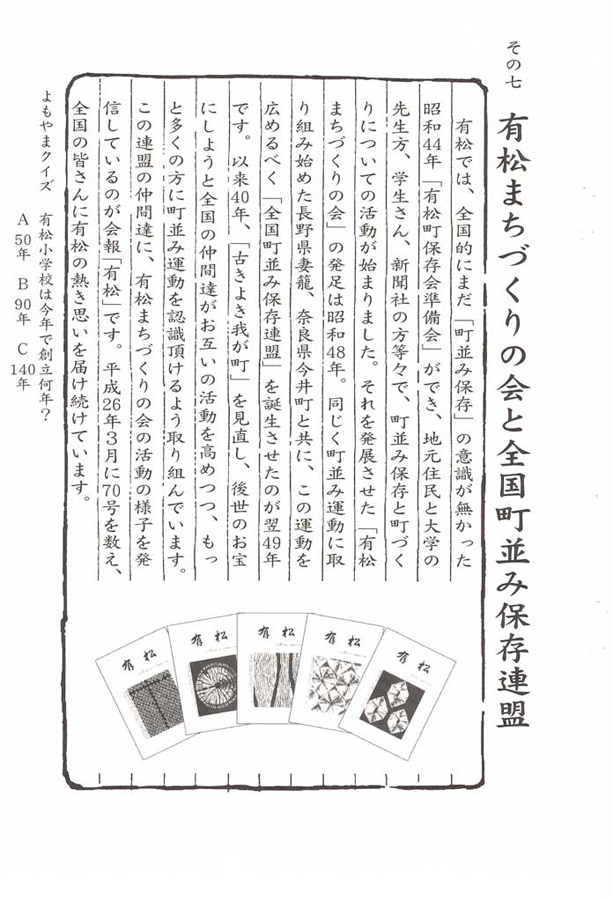 その七
有松まちづくりの会と全国町並み保存連盟
有松では、全国的にまだ「町並み保存」の意識が無かった
昭和44年「有松町保存会準備会」ができ、地元住民と大学の
先生方、学生さん、新聞社の方等々で、町並み保存と町づく
りについての活動が始まりました。それを発展させた「有松
まちづくりの会」の発足は昭和48年。同じく町並み運動に取
り組み始めた長野県妻籠、奈良県今井町と共に、この運動を
広めるべく「全国町並み保存連盟」を誕生させたのが翌49年
です。以来40年、「古きよき我が町」を見直し、後世のお宝
にしようと全国の仲間達がお互いの活動を高めつつ、もっ
と多くの方に町並み運動を認識頂けるよう取り組んでいます。
この連盟の仲間達に、有松まちづくりの会の活動の様子を発
信しているのが会報「有松」です。平成26年3月に70号を数え、
全国の皆さんに有松の熱き思いを届け続けています。
有松
有松
有松
有松
有松
よもやまクイズ 有松小学校は今年で創立何年?
A 50年 B 90年 C 140年